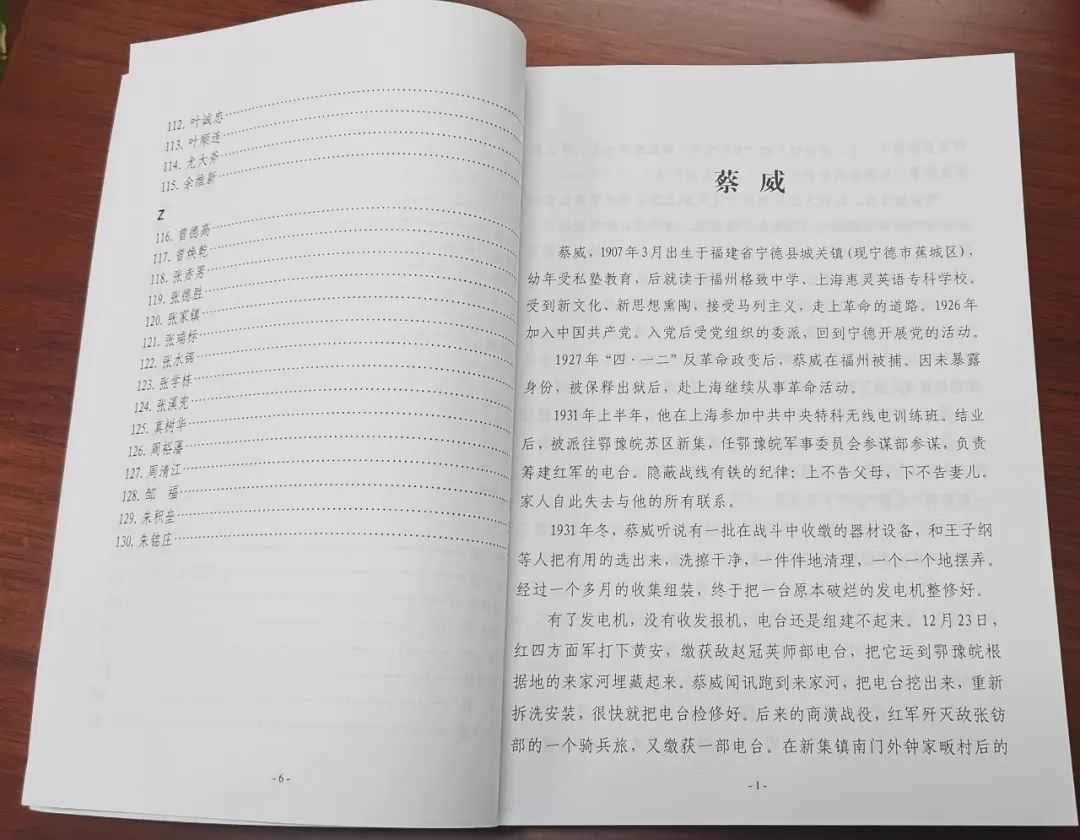 112. 叶诚忠
113. 叶顺连
114. 尤大斧
115. 余维新
Z
116. 曾德高
117. 曾焕乾
118. 张赤男
119. 张德胜
120. 张家镇
121. 张瑞标
122. 张水锦
123. 张学栋
124. 张溪兜
125. 真树华
126. 周裕藩
127. 周清江
128. 邹 福
129. 朱积垒
130. 朱铭庄
- 6 -
蔡 威
蔡威，1907年3月出生于福建省宁德县城关镇(现宁德市蕉城区)，
幼年受私塾教育，后就读于福州格致中学、上海惠灵英语专科学校。
受到新文化、新思想熏陶，接受马列主义，走上革命的道路。1926年
加入中国共产党。入党后受党组织的委派，回到宁德开展党的活动。
1927年“四·一二”反革命政变后，蔡威在福州被捕。因未暴露
身份，被保释出狱后，赴上海继续从事革命活动。
1931年上半年，他在上海参加中共中央特科无线电训练班。结业
后，被派往鄂豫皖苏区新集，任鄂豫皖军事委员会参谋部参谋，负责
筹建红军的电台。隐蔽战线有铁的纪律：上不告父母，下不告妻儿。
家人自此失去与他的所有联系。
1931年冬，蔡威听说有一批在战斗中收缴的器材设备，和王子纲
等人把有用的选出来，洗擦干净，一件件地清理，一个一个地摆弄。
经过一个多月的收集组装，终于把一台原本破烂的发电机整修好。
有了发电机，没有收发报机，电台还是组建不起来。12月23日，
红四方面军打下黄安，缴获敌赵冠英师部电台，把它运到鄂豫皖根
据地的来家河埋藏起来。蔡威闻讯跑到来家河，把电台挖出来，重新
拆洗安装，很快就把电台检修好。后来的商潢战役，红军歼灭敌张钫
部的一个骑兵旅，又缴获一部电台。在新集镇南门外钟家畈村后的
- 1 -